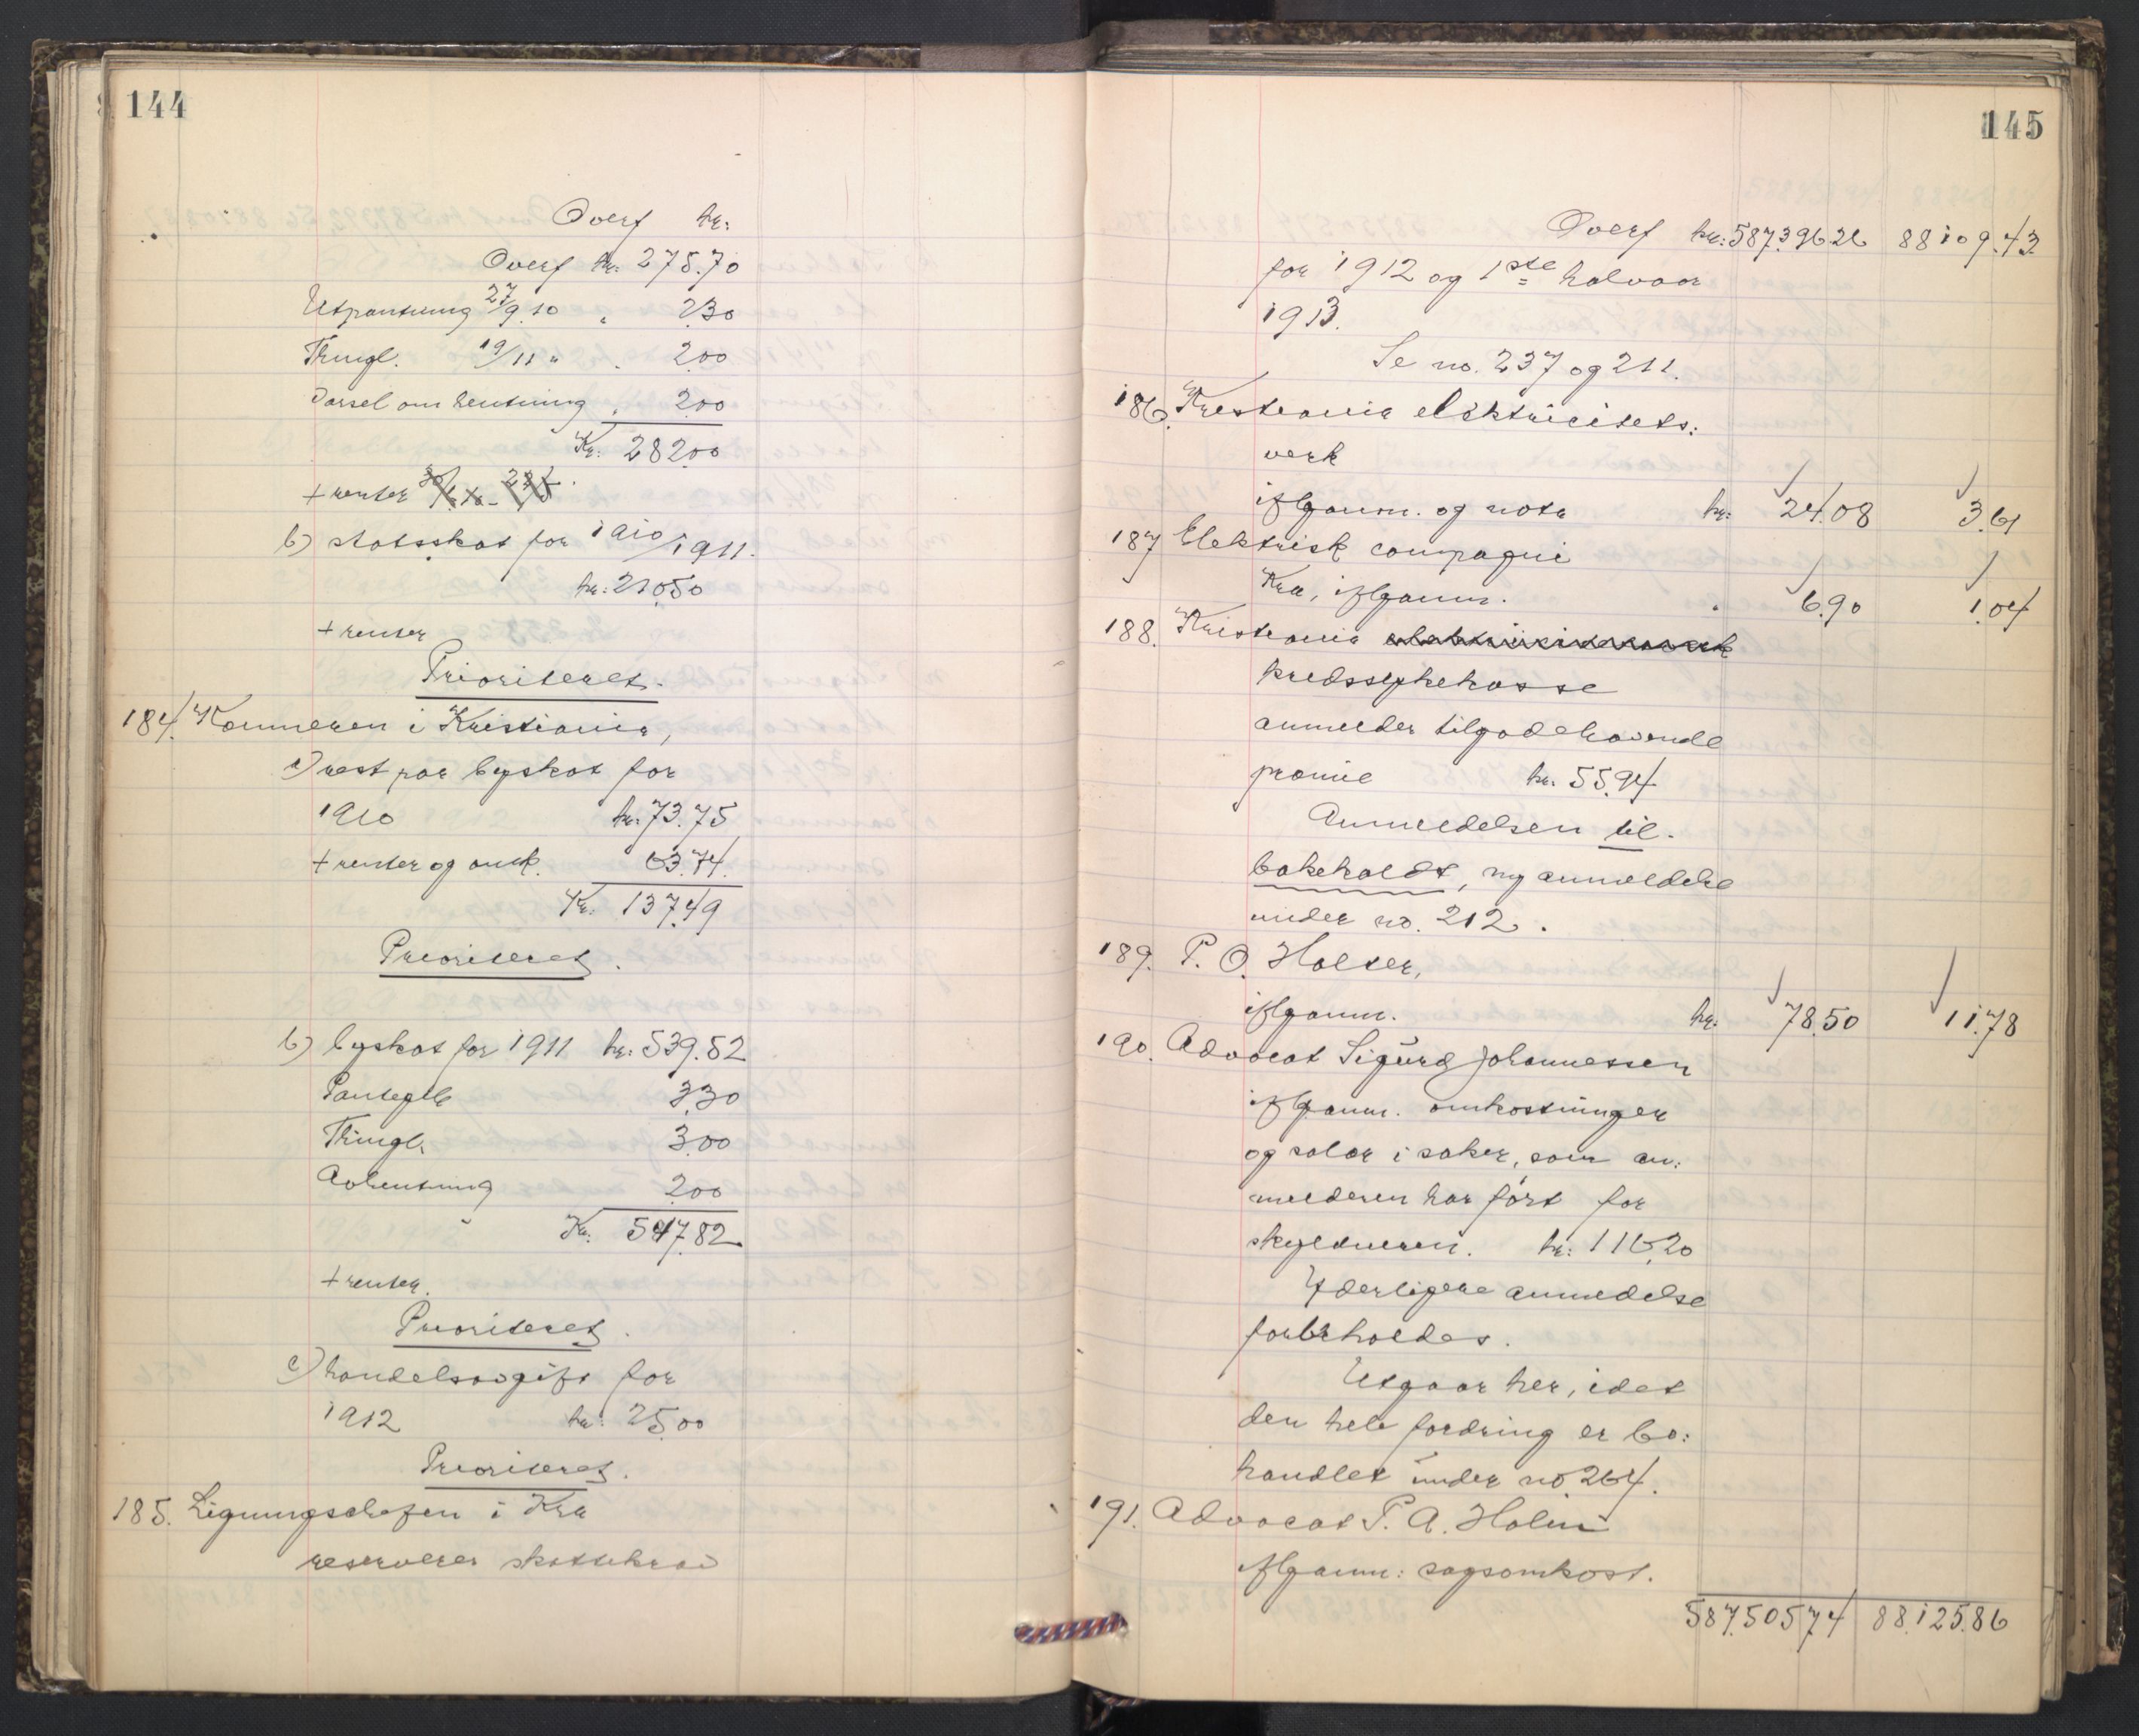 144
Overf kr:
Overf kr: 275.70
Utpantning 27/9.10 " 2.30
Thingl. 19/11 " . 2.00
Varsel om hentning . 2.00
Kr: 282.00
+ renter
b) statsskat for 1910/1911.
kr: 210.50
+ renter
Prioriteret.
184. Kæmneren i Kristiania,
a) rest paa byskat for
1910 kr: 73.75
+ renter og omk. 63.74
Kr. 137.49
Prioriteret.
b) byskat for 1911 kr: 539.52
Pantegeb 3.30
Thingl. 3.00
Avhentning 2.00
Kr: 547.82
+ renter.
Prioriteret.
c) handelsavgift for
1912 kr: 25.00
Prioriteret.
185. Ligningschefen i Kra
reserverer skattekrav
145
Overf kr: 587.396 26 88 109.43
for 1912 og 1ste halvaar
1913.
Se no. 237 og 211.
186. Kristiania elektricitets:
verk
iflganm. og nota kr: 24.08 3.61
187 Elektrisk compagni
Kra, iflganm. . 6.90 1.04
188. Kristiania elektricitetsverk
kredssykekasse
anmelder tilgodehavende
præmie kr. 55.94
Anmeldelsen til-
bakeholdt, ny anmeldelse
under no. 212.
189. P. O. Holter,
iflganm. kr: 78.50 11.78
190. Advocat Sigurd Johannessen
iflganm. omkostninger
og salær i saker, som an:
melderen har ført for
skyldneren. kr: 116.20
Yderligere anmeldelse
forbeholdes.
Utgaar her, idet
den hele fordring er be:
handlet under no. 264.
191. Advocat P. A. Holm
iflganm: sagsomkost.
587.505 74 88.125.86